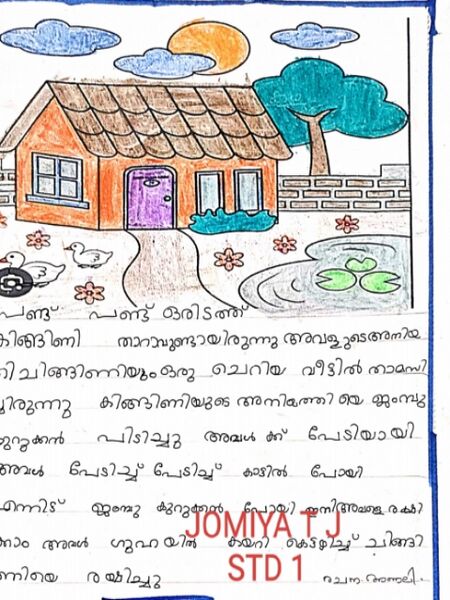 പണ്ട് പണ്ട് ഒരിടത്ത്
കിങ്ങിണി താറാവുണ്ടായിരുന്നു അവളുടെ അനിയ
ത്തി ചിങ്ങിണിയും ഒരു ചെറിയ വീട്ടിൽ താമസി
ച്ചിരുന്നു കിങ്ങിണിയുടെ അനിത്തി യെ ജംമ്പു
കുറുക്കൻ പിടിച്ചു അവൾ ക്ക് പേടിയായി
അവൾ പേടിച്ച് പേടിച്ച് കാടിൽ പോയി
എന്നിട് ജംമ്പു കുറുക്കൻ പോയി ഇനി അവളെ രക്ഷി
ക്കാം അവൾ ഗുഹയിൽ കയറി കെട്ടഴിച്ച് ചിങ്ങി
ണിയെ രക്ഷിച്ചു
JOMIYA T J
STD 1